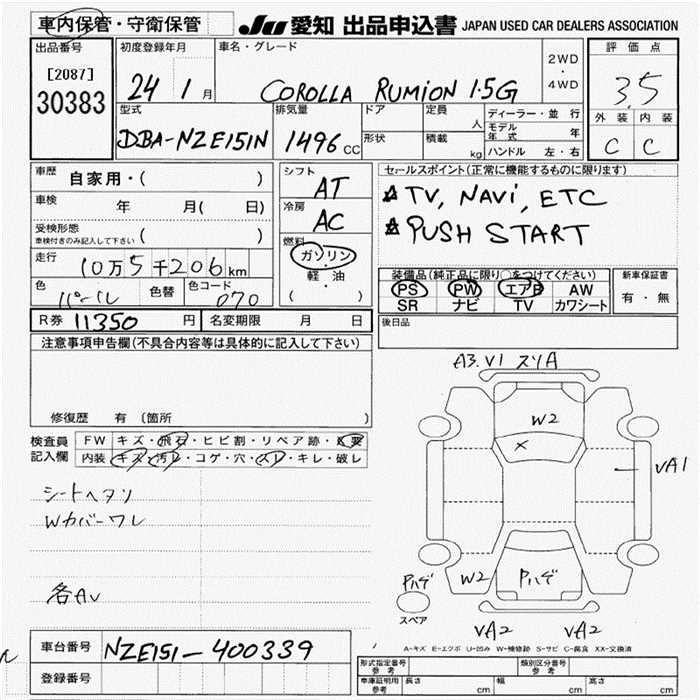 車内保管・守衛保管 JU 愛知 出品申込書 JAPAN USED CAR DEALERS ASSOCIATION
出品番号 初度登録年月 車名・グレード 2WD・4WD 評価点
[2087]
30383
24 1月 COROLLA RUMION 1.5G 3.5
型式 排気量 ドア 定員 人 ディーラー・並行 外装 内装
DBA-NZE151N 1496cc 形状 積載 kg モデル年式 年 C C
ハンドル 左・右
車歴 自家用・( ) シフト AT セールスポイント(正常に機能するものに限ります)
車検 年 月( 日) 冷房 AC ☆TV, NAVi, ETC
受検形態 車検付きのみ記入して下さい ( ) ☆PUSH START
走行 10万5千206km 燃料 ガソリン・軽油 ( )
色 パール 色替 色コード 070
装備品(純正品に限り○をつけてください) 新車保証書
PS PW エアB AW 有・無
SR ナビ TV カワシート
R券 11350円 名変期限 月 日 後日品
注意事項申告欄(不具合内容等は具体的に記入して下さい)
修復歴 有 (箇所 )
検査員記入欄 FW キズ・飛石・ヒビ割・リペア跡・X要
内装 キズ・汚レ・コゲ・穴・スレ・キレ・破レ
シートヘタリ
Wカバーワレ
各AU
A3.V1 スリA
W2
X
VA1
Pハゲ W2 Pハゲ
スペア
VA2 VA2
A-キズ E-エクボ U-凹み W-補修跡 S-サビ C-腐食 XX-交換済
車台番号 NZE151-400339
登録番号
形式指定番号 参考 類別区分番号 参考
車庫証明用 参考 長さ cm 幅 cm 高さ cm